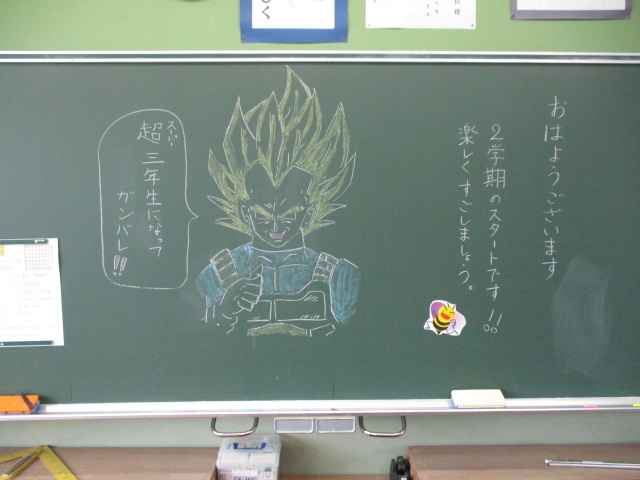 おはようございます
2学期のスタートです!!
楽しくすごしましょう。
スーパー
超三年生になって
ガンバレ!!